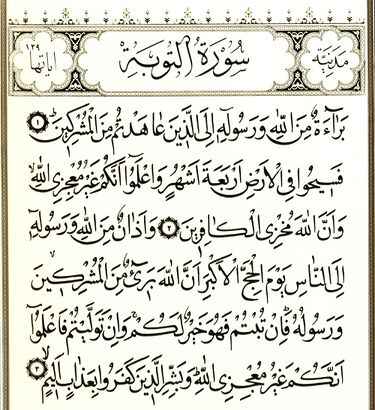 مدنية سورة التوبة آياتها ١٢٩
بَرَاءَةٌ مِنَ اللّٰهِ وَرَسُولِهِ إِلَى الَّذِينَ عَاهَدْتُمْ مِنَ الْمُشْرِكِينَ ١
فَسِيحُوا فِي الْأَرْضِ أَرْبَعَةَ أَشْهُرٍ وَاعْلَمُوا أَنَّكُمْ غَيْرُ مُعْجِزِي اللّٰهِ
وَأَنَّ اللّٰهَ مُخْزِي الْكَافِرِينَ ٢ وَأَذَانٌ مِنَ اللّٰهِ وَرَسُولِهِ
إِلَى النَّاسِ يَوْمَ الْحَجِّ الْأَكْبَرِ أَنَّ اللّٰهَ بَرِيءٌ مِنَ الْمُشْرِكِينَ
وَرَسُولُهُ فَإِنْ تُبْتُمْ فَهُوَ خَيْرٌ لَكُمْ وَإِنْ تَوَلَّيْتُمْ فَاعْلَمُوا
أَنَّكُمْ غَيْرُ مُعْجِزِي اللّٰهِ وَبَشِّرِ الَّذِينَ كَفَرُوا بِعَذَابٍ أَلِيمٍ ٣